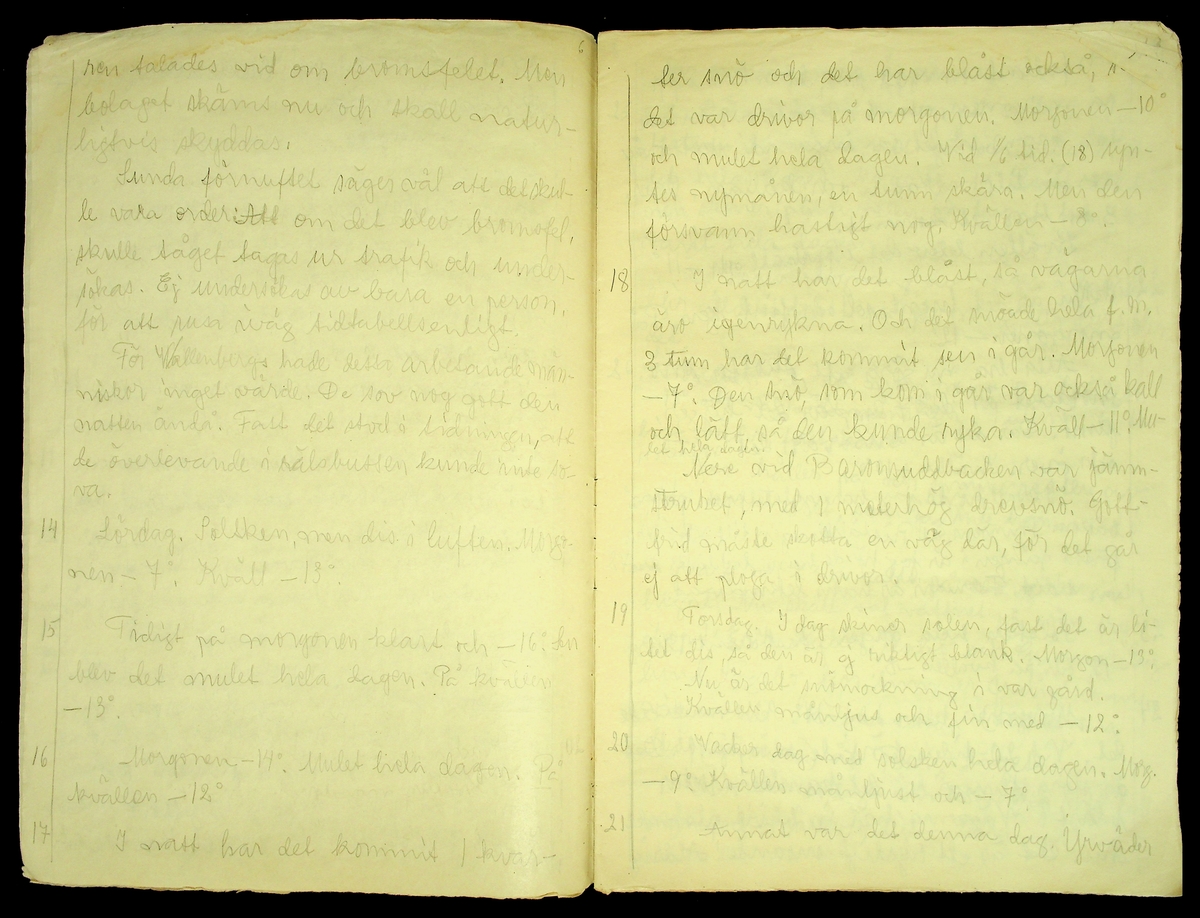 6
ren talades vid om bromsfelet. Men
bolaget skäms nu och skall natur-
ligtvis skyddas.
Sunda förnuftet säger väl att det skul-
le vara order: Att om det blev bromsfel,
skulle tåget tagas ur trafik och under-
sökas. Ej undersökas av bara en person,
för att rusa iväg tidtabellsenligt.
För Wallenbergs hade detta arbetande män-
niskor inget värde. De sov nog gott den
natten ändå. Fast det stod i tidningen, att
de överlevande i rälsbussen kunde inte so-
va.
14 Lördag. Solsken, men dis i luften. Morgo-
nen - 7°. Kväll - 13°.
15 Tidigt på morgonen klart och - 16°. Sen
blev det mulet hela dagen. På kvällen
- 13°.
16 Morgonen - 14°. Mulet hela dagen. På
kvällen - 12°
17 I natt har det kommit 1 kvar-
ter snö och det har blåst också,
det var drivor på morgonen. Morgonen - 10°
och mulet hela dagen. Vid 1/2 6 tid. (18) syn-
tes nymånen, en tunn skära. Men den
försvann hastigt nog. Kvällen - 8°.
18 I natt har det blåst, så vägarna
äro igenrykna. Och det snöade hela f.m.
3 tum har det kommit sen i går. Morgonen
- 7°. Den snö, som kom i går var också kall
och lätt, så den kunde ryka. Kväll - 11°. Mu-
let hela dagen.
Nere vid Baronsuddbacken var jämn-
struket, med 1 meterhög drevsnö. Gott-
frid måste skotta en väg där, för det går
ej att ploga i drivor.
19 Torsdag. I dag skiner solen, fast det är li-
tet dis, så den är ej riktigt blank. Morgon - 13°.
Nu är det snömockning i var gård.
Kvällen månljus och fin med - 12°.
20 Vacker dag med solsken hela dagen. Morg.
- 9°. Kvällen månljust och - 7°.
21 Annat var det denna dag. Yrväder